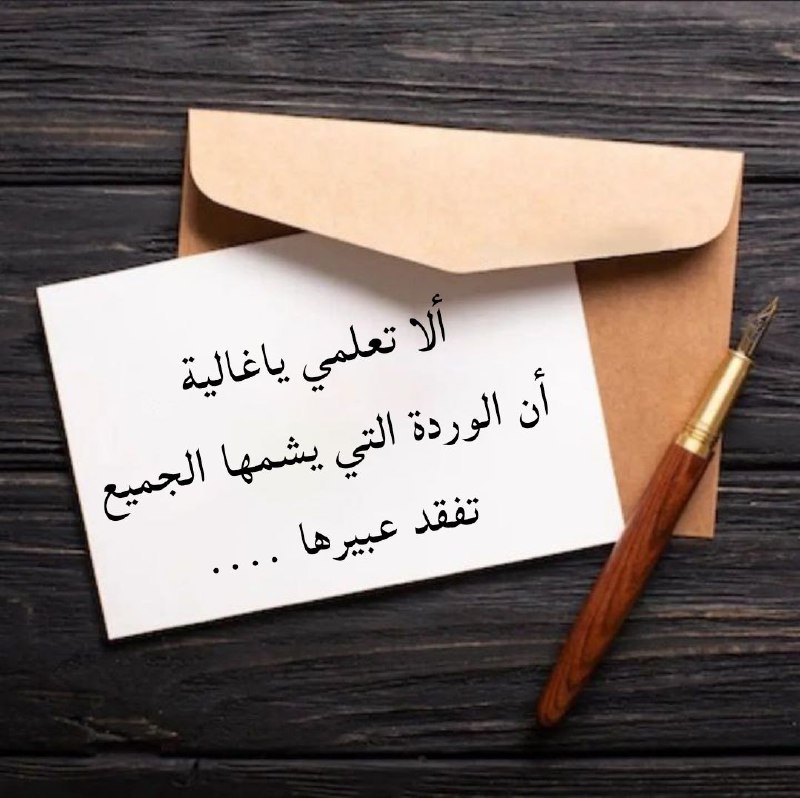 ألا تعلمي ياغالية
أن الوردة التي يشمها الجميع
تفقد عبيرها ....